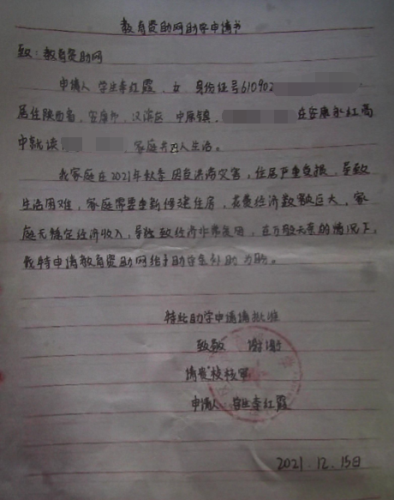 教育资助网助学申请书
致：教育资助网
申请人 学生李红霞，女，身份证号610902
居住陕西省，安康市，汉滨区 中原镇，在安康市红高
中就读，家庭共 人生活。
我家庭在2021年秋季因受洪涝灾害，住房严重受损，导致
生活困难，家庭需要重新修建住房，花费经济数额巨大，家
庭无稳定经济收入，导致经济非常困难，在万般无奈的情况下，
我特申请教育资助网给予助学金补助 为盼。
特此助学申请请批准
致敬 谢谢
请贵校核实
申请人 学生李红霞
2021.12.15日